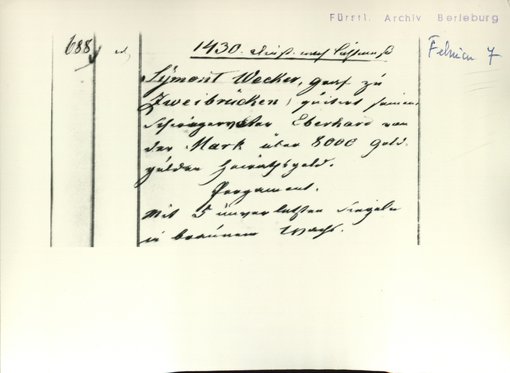 Fürstl. Archiv Berleburg
688
1430. Dinst. nach
Februar 7
Symont Wecker, graf zu
Zweibrücken, quitirt seinem
Schwiegervater Eberhard von
der Mark über 8000 Gold-
gülden Heirathsgeld.
Pergament.
Mit 5 unverletzten Siegeln
in braunem Wachs.